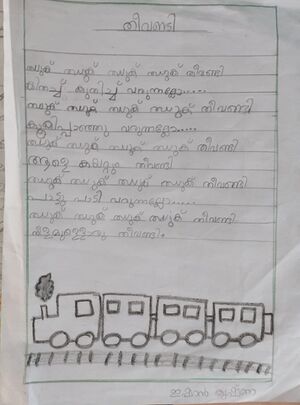 തീവണ്ടി
ഝുക് ഝുക് ഝുക് ഝുക് തീവണ്ടി
കിതച്ച് കുതിച്ച് വരുന്നല്ലോ.....
ഝുക് ഝുക് ഝുക് ഝുക് തീവണ്ടി
കൂകിപ്പാഞ്ഞു വരുന്നല്ലോ.....
ഝുക് ഝുക് ഝുക് ഝുക് തീവണ്ടി
ആളെ കയറ്റും തീവണ്ടി
ഝുക് ഝുക് ഝുക് ഝുക് തീവണ്ടി
പാട്ടു പാടി വരുന്നല്ലോ.....
ഝുക് ഝുക് ഝുക് ഝുക് തീവണ്ടി
നീളമുള്ളൊരു തീവണ്ടി.
കൃഷ്ണ